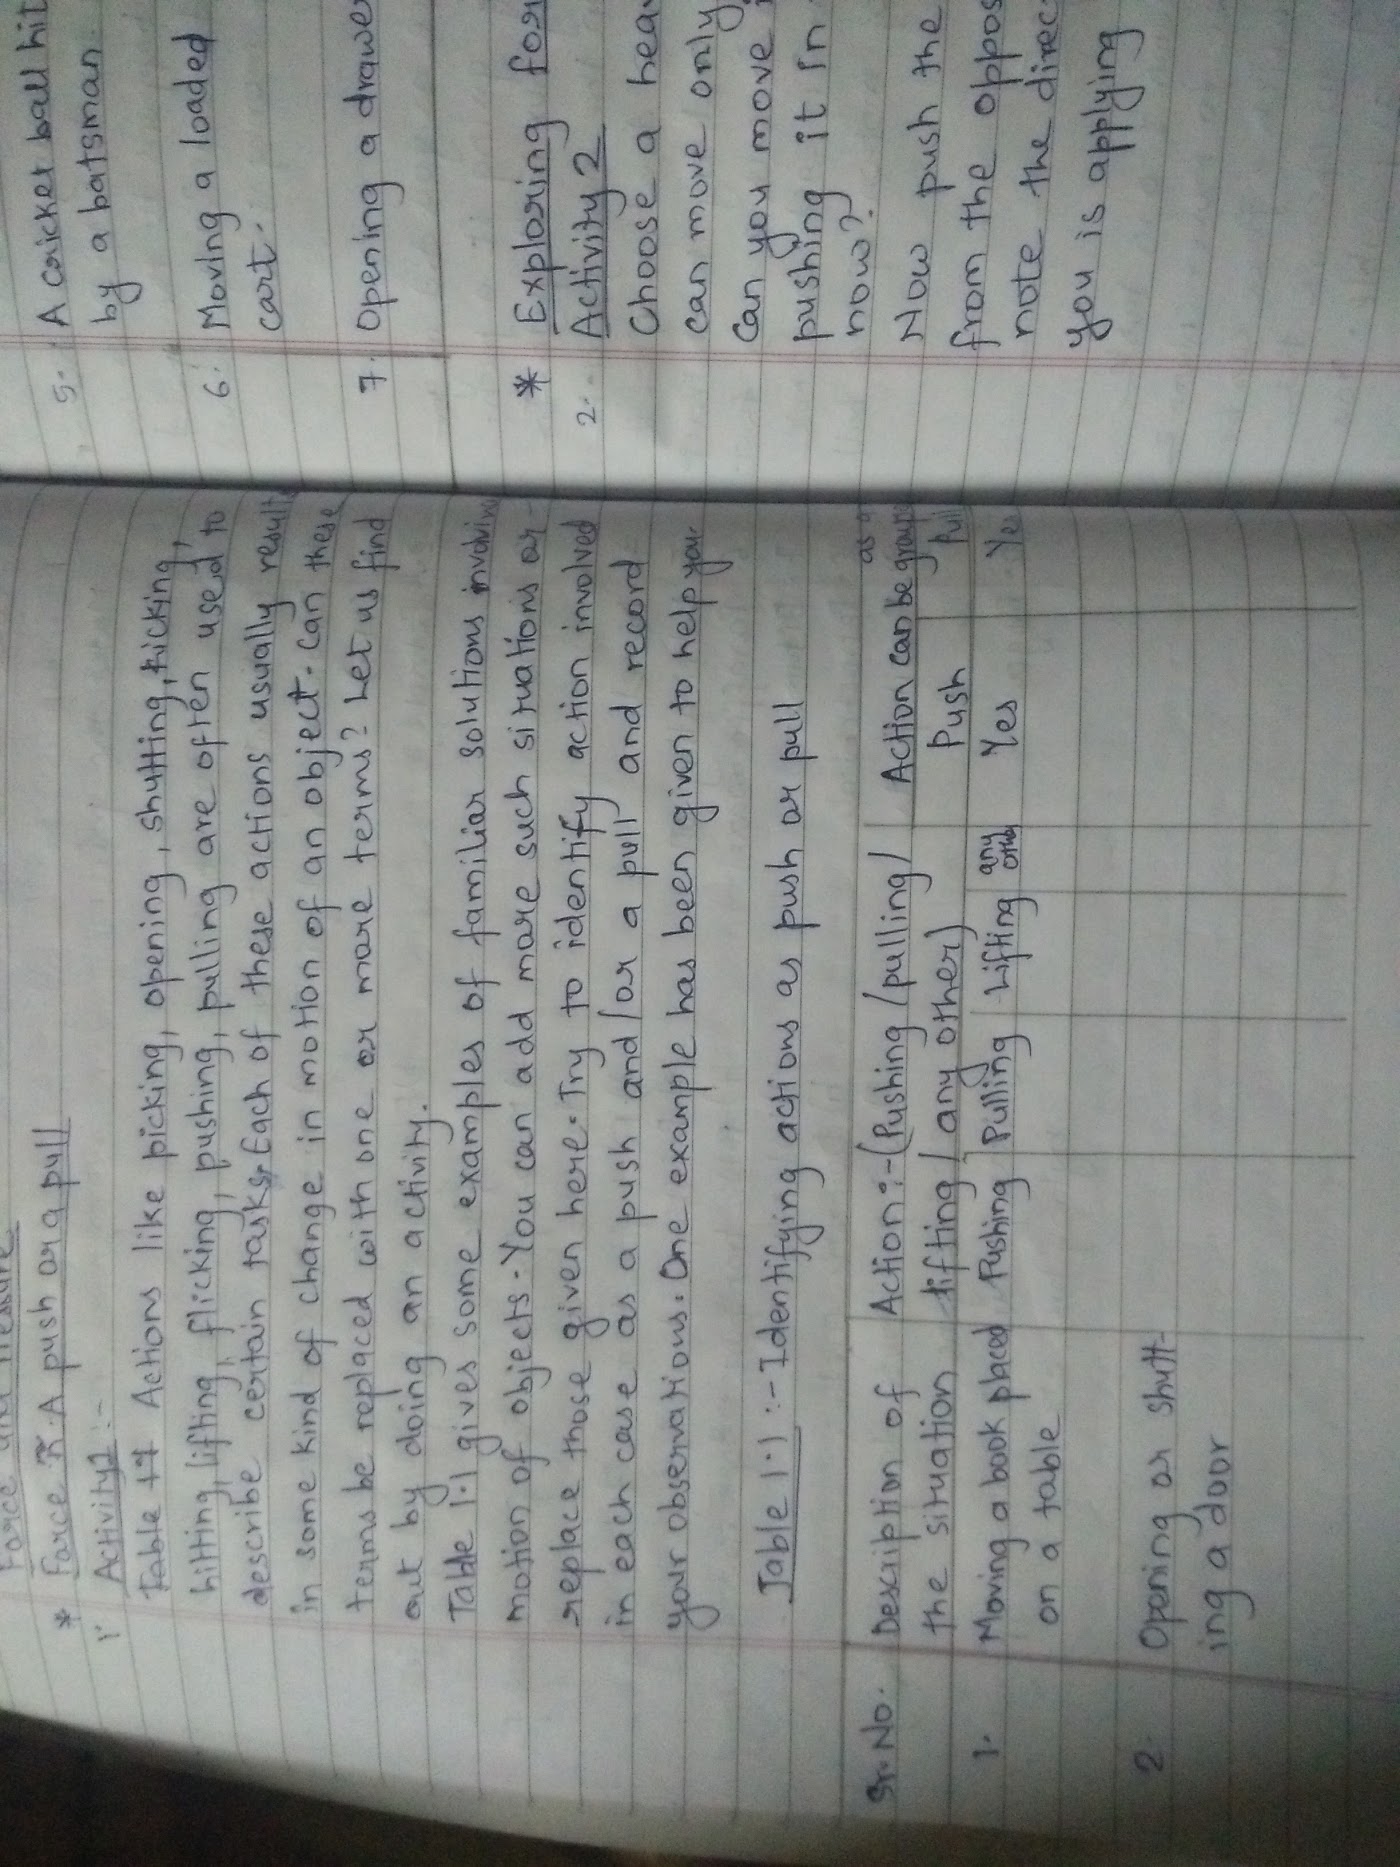 Force and Pressure
* Force :- A push or a pull
1. Activity1 :-
Table 1.1 Actions like picking, opening, shutting, kicking,
hitting, lifting, flicking, pushing, pulling are often used to
describe certain tasks. Each of these actions usually results
in some kind of change in motion of an object. Can these
terms be replaced with one or more terms? Let us find
out by doing an activity.
Table 1.1 gives some examples of familiar solutions involving
motion of objects. You can add more such situations or
replace those given here. Try to identify action involved
in each case as a push and/or a pull and record
your observations. One example has been given to help you.
Table 1.1 :- Identifying actions as push or pull
Sr. No. Description of Action :- (Pushing/pulling/ Action can be grouped as a
the situation lifting/any other) Push Pull
1. Moving a book placed Pushing Pulling Lifting any other Yes Yes
on a table
2. Opening or shutt-
ing a door
5. A cricket ball hit
by a batsman.
6. Moving a loaded
cart.
7. Opening a drawer
* Exploring for
2. Activity 2
Choose a hea
can move only
Can you move i
pushing it in
now?
Now push the
from the oppos
note the direc
you is applying